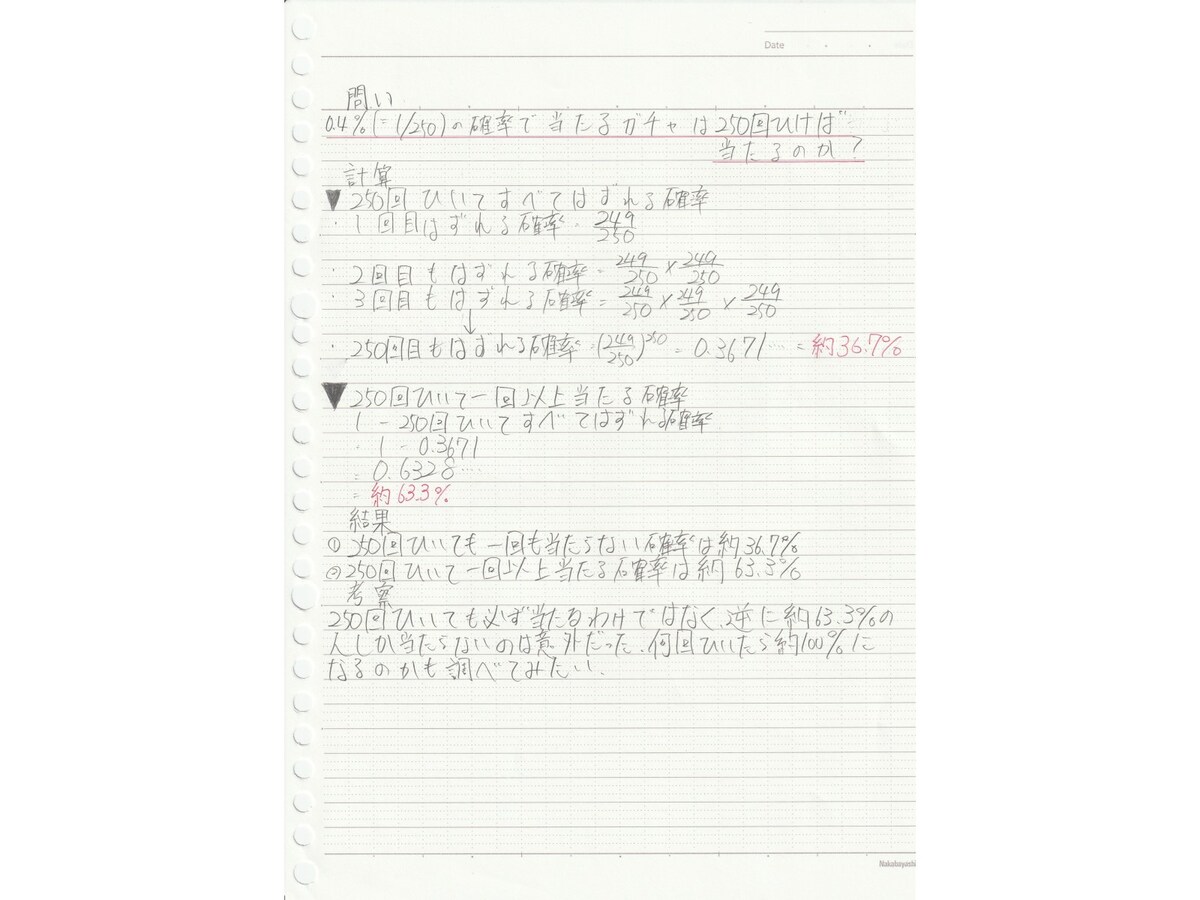 Date
問い
0.4%(=1/250)の確率で当たるガチャは250回ひけば
当たるのか?
計算
▼250回ひいてすべてはずれる確率
・1回目はずれる確率= 249/250
・2回目もはずれる確率= 249/250 × 249/250
・3回目もはずれる確率= 249/250 × 249/250 × 249/250
↓
・250回目もはずれる確率=(249/250)^250 = 0.3671… = 約36.7%
▼250回ひいて一回以上当たる確率
1-250回ひいてすべてはずれる確率
=1-0.3671
=0.6328…
=約63.3%
結果
①250回ひいても一回も当たらない確率は約36.7%
②250回ひいて一回以上当たる確率は約63.3%
考察
250回ひいても必ず当たるわけではなく、逆に約63.3%の
人しか当たらないのは意外だった.何回ひいたら約100%に
なるのかも調べてみたい.
Nakabayashi